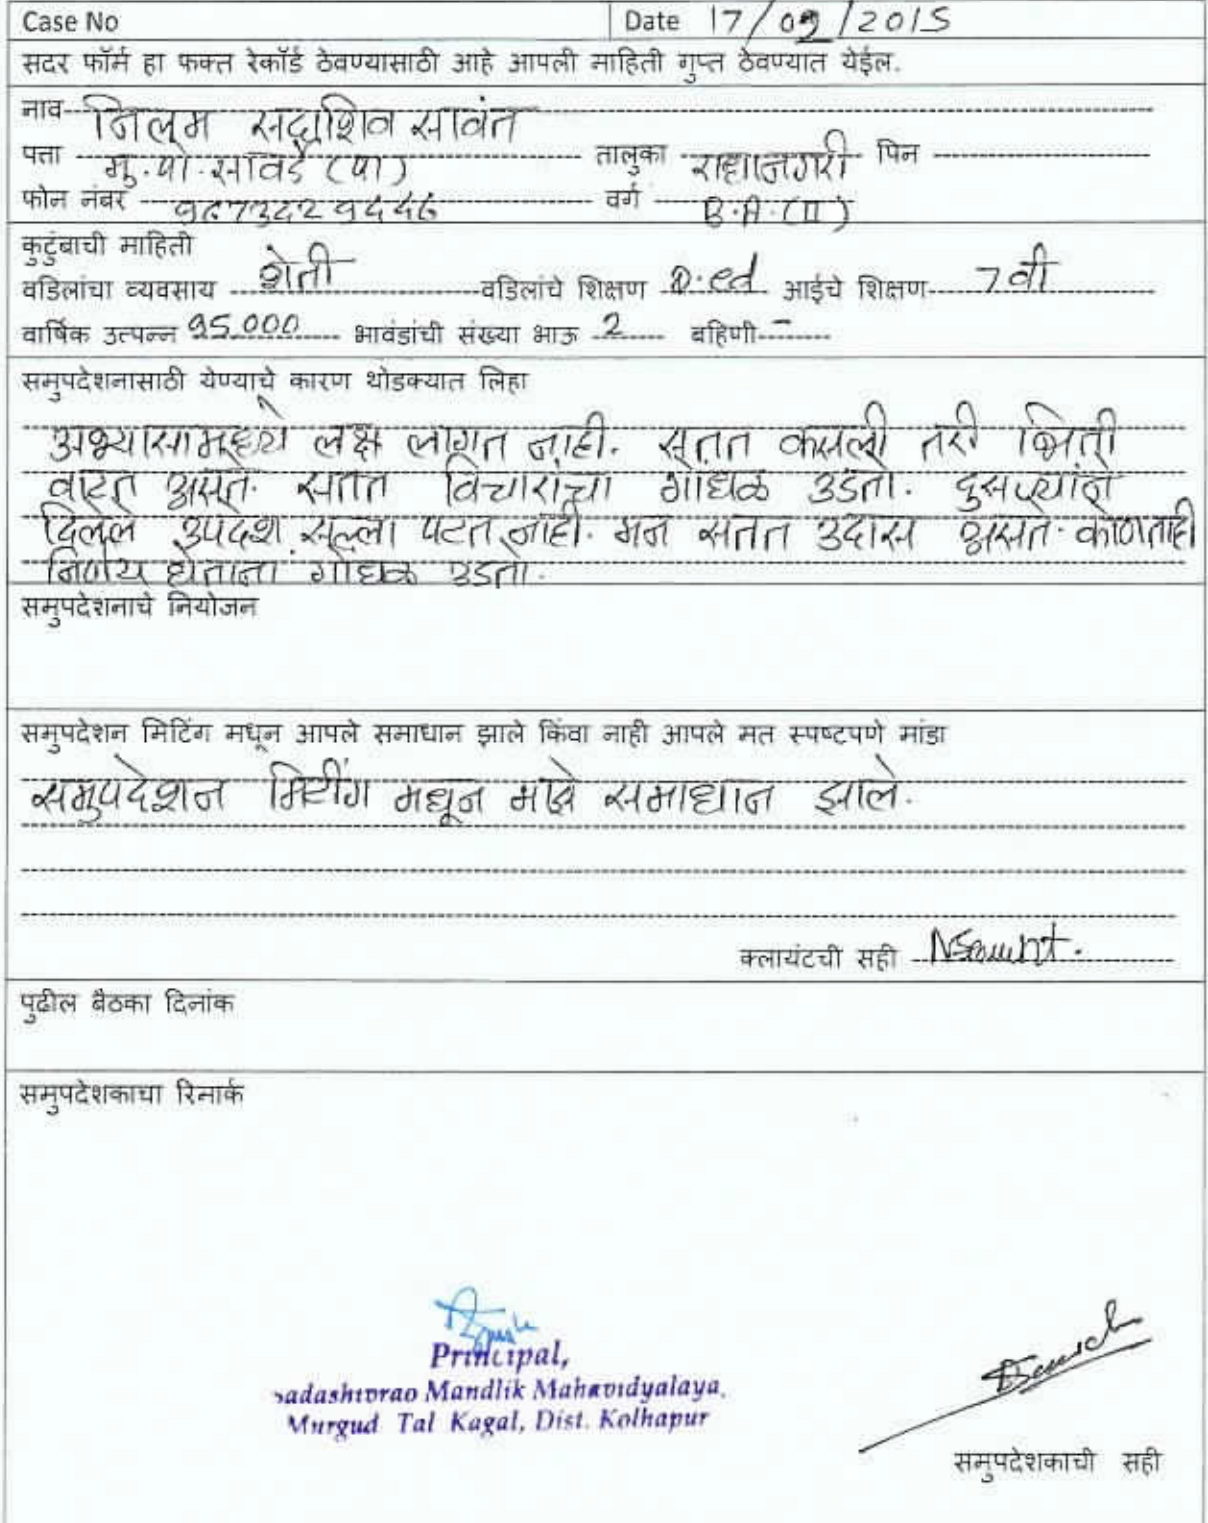 Case No Date 17/09/2015
सदर फॉर्म हा फक्त रेकॉर्ड ठेवण्यासाठी आहे आपली माहिती गुप्त ठेवण्यात येईल.
नाव निलम सदाशिव सावंत
पत्ता मु.पो.सावर्डे (पा) तालुका राधानगरी पिन
फोन नंबर वर्ग B.A.(II)
कुटुंबाची माहिती
वडिलांचा व्यवसाय शेती वडिलांचे शिक्षण D.ed आईचे शिक्षण 7 वी
वार्षिक उत्पन्न 95.000 भावंडांची संख्या भाऊ 2 बहिणी -
समुपदेशनासाठी येण्याचे कारण थोडक्यात लिहा
अभ्यासामध्ये लक्ष लागत नाही. सतत कसली तरी भिती
वाटत असते. सतत विचारांचा गोंधळ उडतो. दुसऱ्यांने
दिलेले उपदेश सल्ला पटत नाही. मन सतत उदास असते. कोणताही
निर्णय घेताना गोंधळ उडतो.
समुपदेशनाचे नियोजन
समुपदेशन मिटिंग मधून आपले समाधान झाले किंवा नाही आपले मत स्पष्टपणे मांडा
समुपदेशन मिटींग मधून माझे समाधान झाले.
क्लायंटची सही NSawant.
पुढील बैठका दिनांक
समुपदेशकाचा रिमार्क
Principal,
Sadashivrao Mandlik Mahavidyalaya,
Murgud Tal Kagal, Dist. Kolhapur
समुपदेशकाची सही